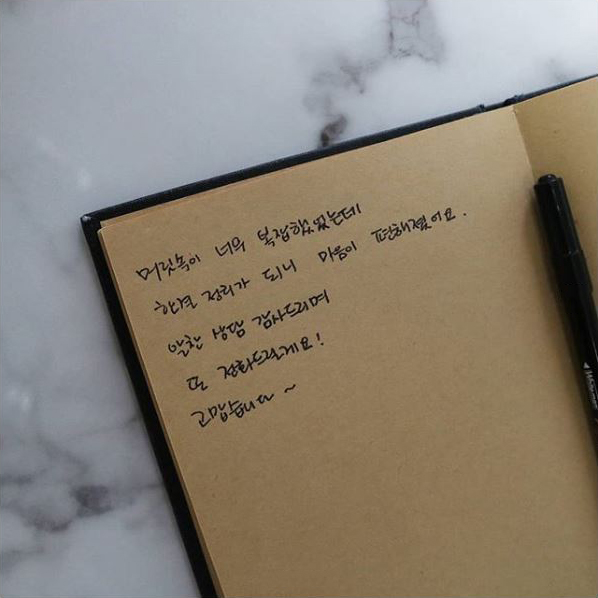 머릿속이 너무 복잡했었는데
한결 정리가 되니 마음이 편해졌어요.
알찬 상담 감사드리며
또 전화드릴게요!
고맙습니다 ~